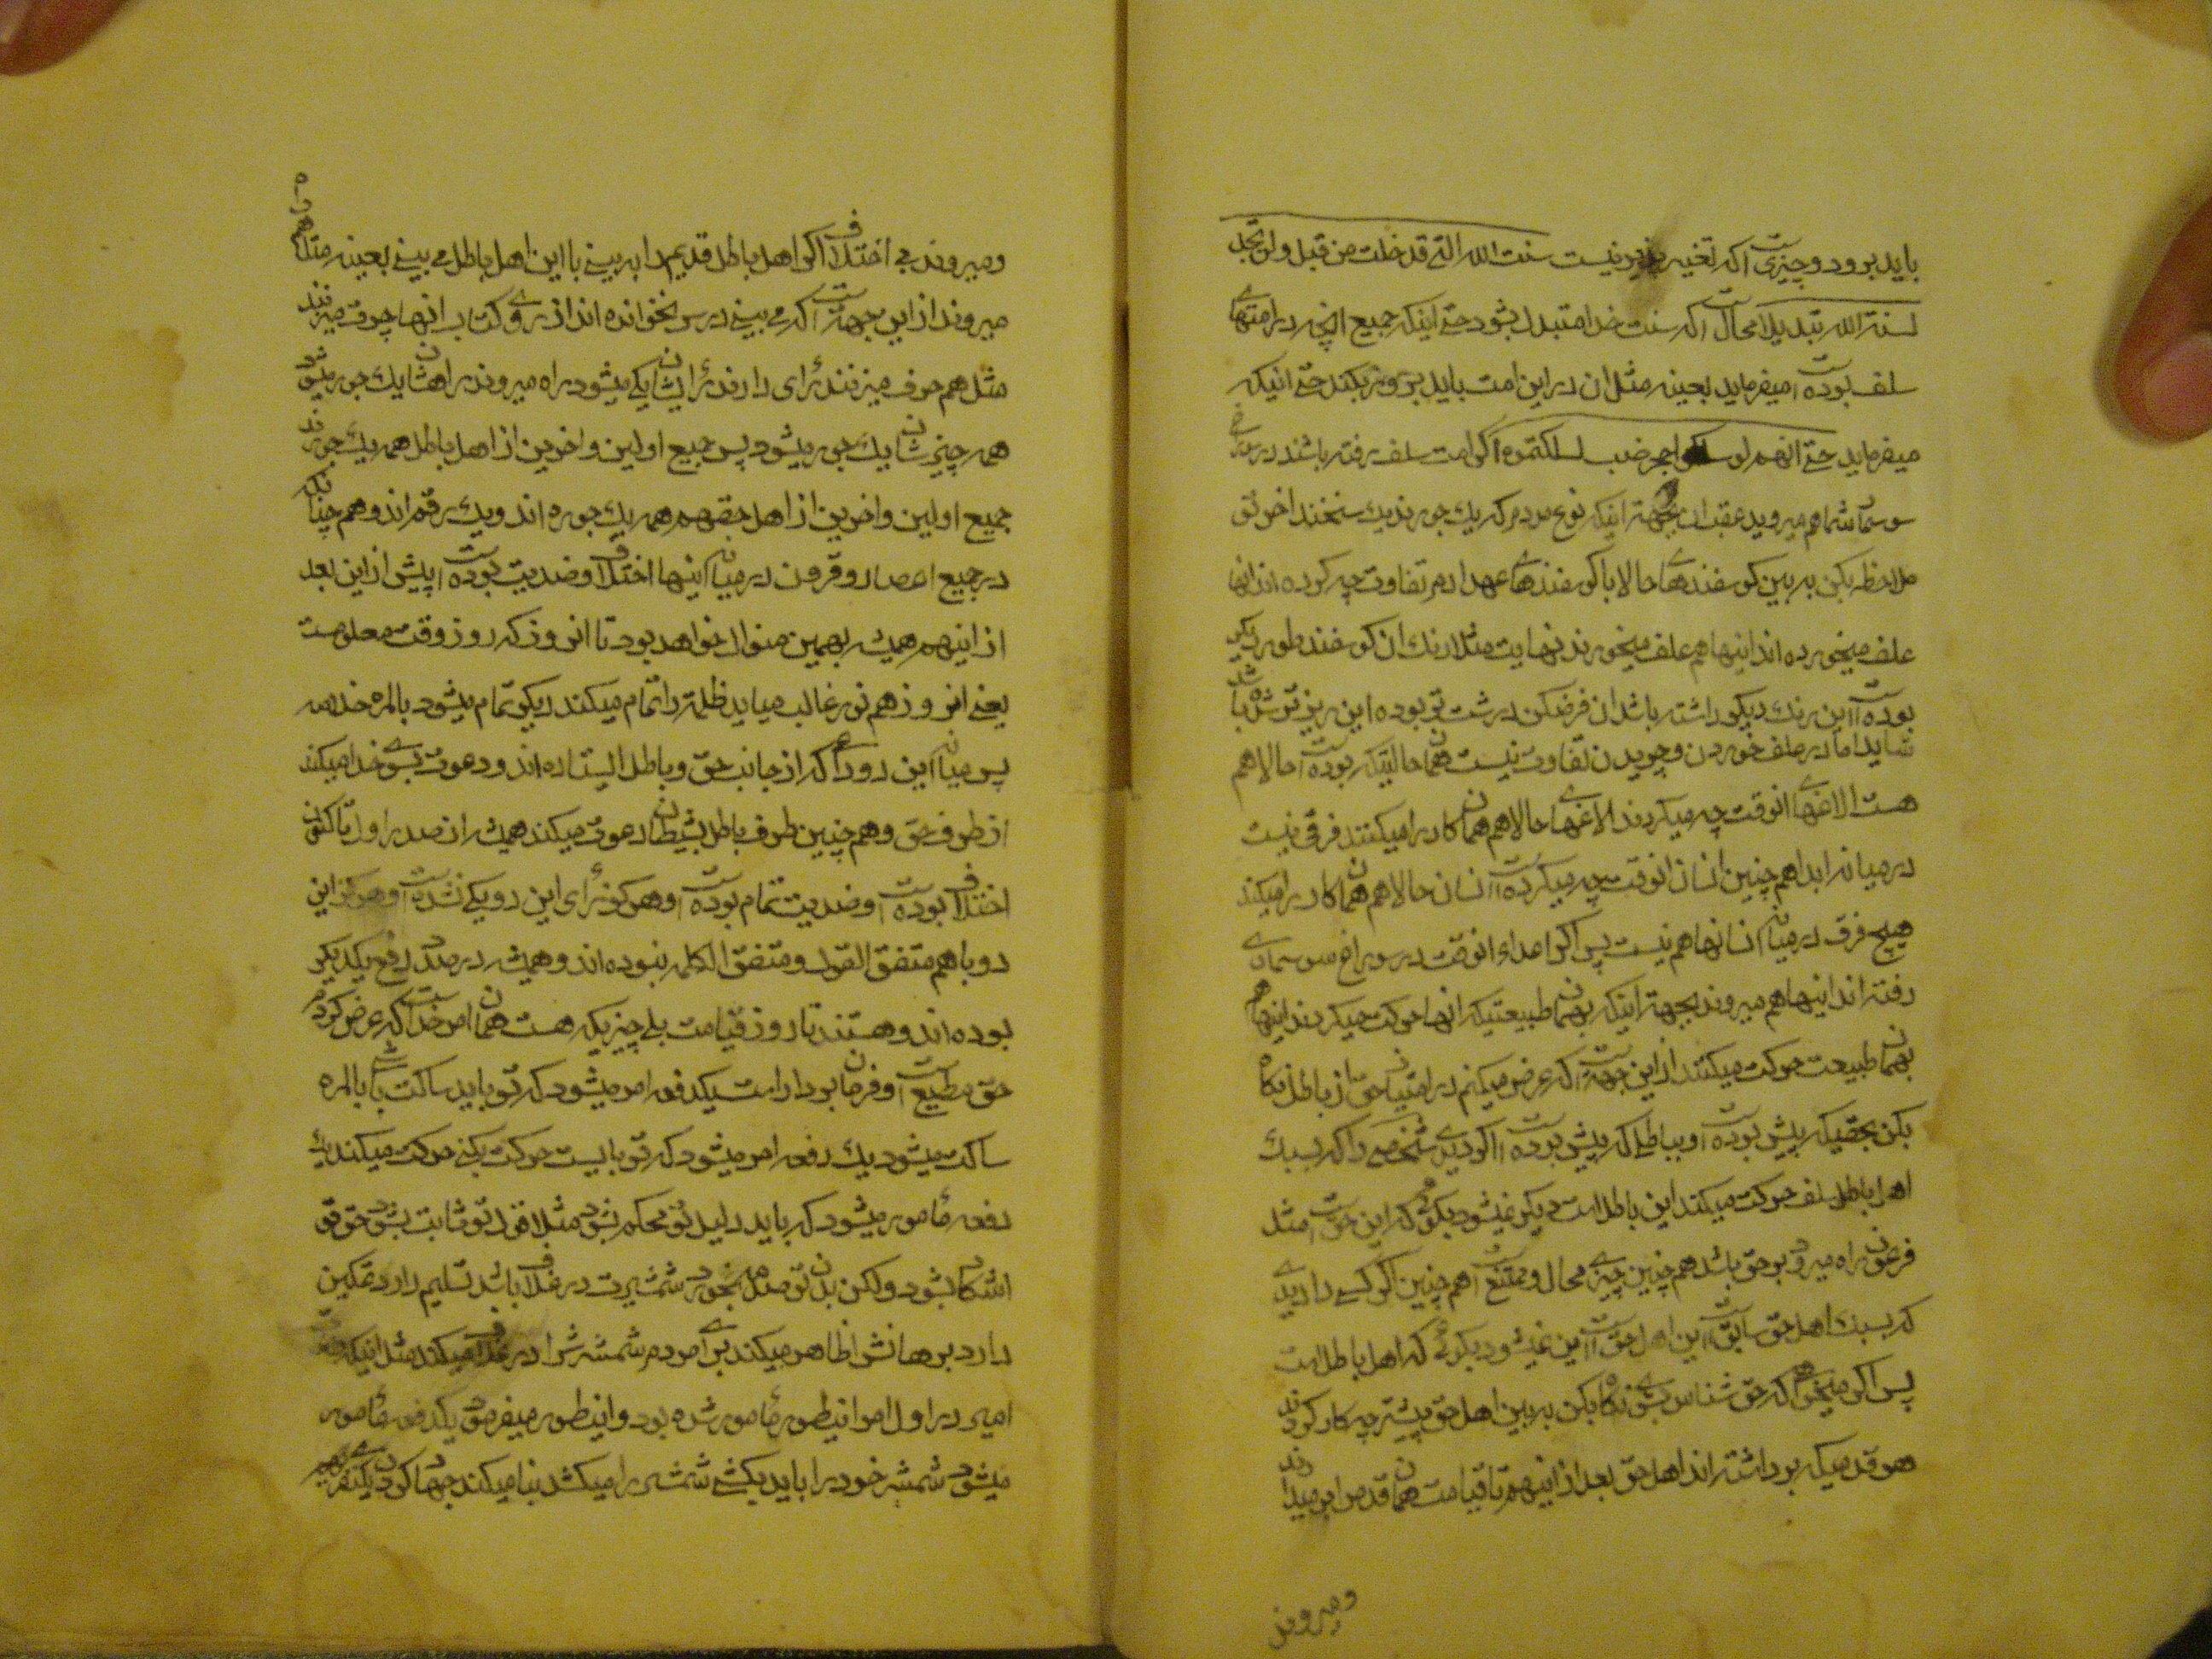 باید برود و چیزی است که تغییر پذیر نیست سنت الله التی قد خلت من قبل ولن تجد
لسنة الله تبدیلا محال است که سنت خدا متبدل بشود حتی اینکه جمیع انچه در امتهای
سلف بوده است میفرماید بعینه مثل ان در این امت باید بروز بکند حتی اینکه
میفرماید حتی انهم لو سلکوا جحر ضب لسلکتموه اگر امت سلف رفته باشند در سوراخ
سوسمار شما هم میروید عقب ان بجهة اینکه نوع مردم که یک جورند یک سنخند اخر تو
ملاحظه بکن به بین گوسفندهای حالا با گوسفندهای عهد ادم تفاوت چه کرده اند انها
علف میخورده اند اینها هم علف میخورند نهایت مثلا رنک ان گوسفند طور دیگر
بوده است این رنک دیگر داشته باشد ان فرضکن درشت تر بوده این ریز تر شده باشد
شاید اما در علف خوردن و چریدن تفاوت نیست همان حالتیکه بوده است حالا هم
هست الاغهای انوقت چه میکردند الاغهای حالا هم همان کار را میکنند فرقی نیست
در میانه ابدا همچنین انسان انوقت چه میکرده است انسان حالا هم همان کار را میکند
هیچ فرق در میان انسانها هم نیست پس اگر اعداء انوقت در سوراخ سوسماری
رفته اند اینها هم میروند بجهة اینکه بهمان طبیعتیکه انها حرکت میکردند اینها هم
بهمان طبیعت حرکت میکنند از این جهة است که عرض میکنم در امتیاز حق از باطل نگاه
بکن بحقیکه پیش بوده است و بباطلی که پیش بوده است اگر دیدی شخصی را که بسبک
اهل باطل سلف حرکت میکند این باطل است دیگر نمیشود بگوئی که این حق است مثل
فرعون راه میرود بر حق باشد همچنین چیزی محال و ممتنع است همچنین اگر کسی را دیدی
که بسبک اهل حق سابق است این اهل حق است این نمیشود بگوئی که اهل باطل است
پس اگر میخواهی که حق شناس بشوی نگاه بکن به بین اهل حق پیشتر چه کار کردند
هر قدمیکه برداشته اند اهل حق بعد از اینهم تا قیامت همان قدم را بر میدارند
و میروند
و میروند بی اختلاف اگر اهل باطل قدیم را به بینی با این اهل باطل می بینی بعینه مثل هم راه
میروند از این جهة است که می بینی درس نخوانده اند از روی کتاب انها حرف میزنند
مثل هم حرف میزنند رای دارند رایشان یکی میشود راه میروند راهشان یک جور میشود
همه چیزشان یک جور میشود پس جمیع اولین و اخرین از اهل باطل همه یک جورند
جمیع اولین و اخرین از اهل حقهم همه یک جوره اند و یک رقم اند و هم چنانکه
در جمیع اعصار و قرون در میان اینها اختلاف و ضدیت بوده است پیش از این بعد
از اینهم همیشه بهمین منوال خواهد بود تا انروز که روز وقت معلومست
یعنی انروز هم نور غالب میاید ظلمة را تمام میکند دیگر تمام میشود بالمره خلاصه
پس میان این دو داعی که از جانب حق و باطل ایستاده اند و دعوت بسوی خدا میکند
از طرف حق و هم چنین طرف باطل بشیطان دعوت میکند همیشه از صدر اول تا کنون
اختلاف بوده است و ضدیت تمام بوده است و هرگز رای این دو یکی نشده است و هرگز این
دو با هم متفق القول و متفق الکلمه نبوده اند و همیشه در صدد دفع یکدیگر
بوده اند و هستند تا روز قیامت بلی چیزیکه هست همان امر خداست که عرض کردم
حق مطیع است و فرمان بردار است یکدفعه امر میشود که تو باید ساکت باشی بالمره
ساکت میشود یک دفعه امر میشود که تو بایست حرکت بکنی حرکت میکند یک
دفعه مأمور میشود که باید دلیل تو محکم بشود مثلا قول تو ثابت بشود حق تو
اشکار بشود ولکن بدن تو صدمه نخورد شمشیرت در غلاف باشد تسلیم دارد تمکین
دارد برهانش را ظاهر میکند برای مردم شمشیرش را در غلاف میکند مثل اینکه
امیر در اول امر اینطور مأمور شده بود و اینطور میفرمود یکدفعه مأمور
میشود شمشیر خود را باید بکشی شمشیر را میکشد بنا میکند جهاد کردن